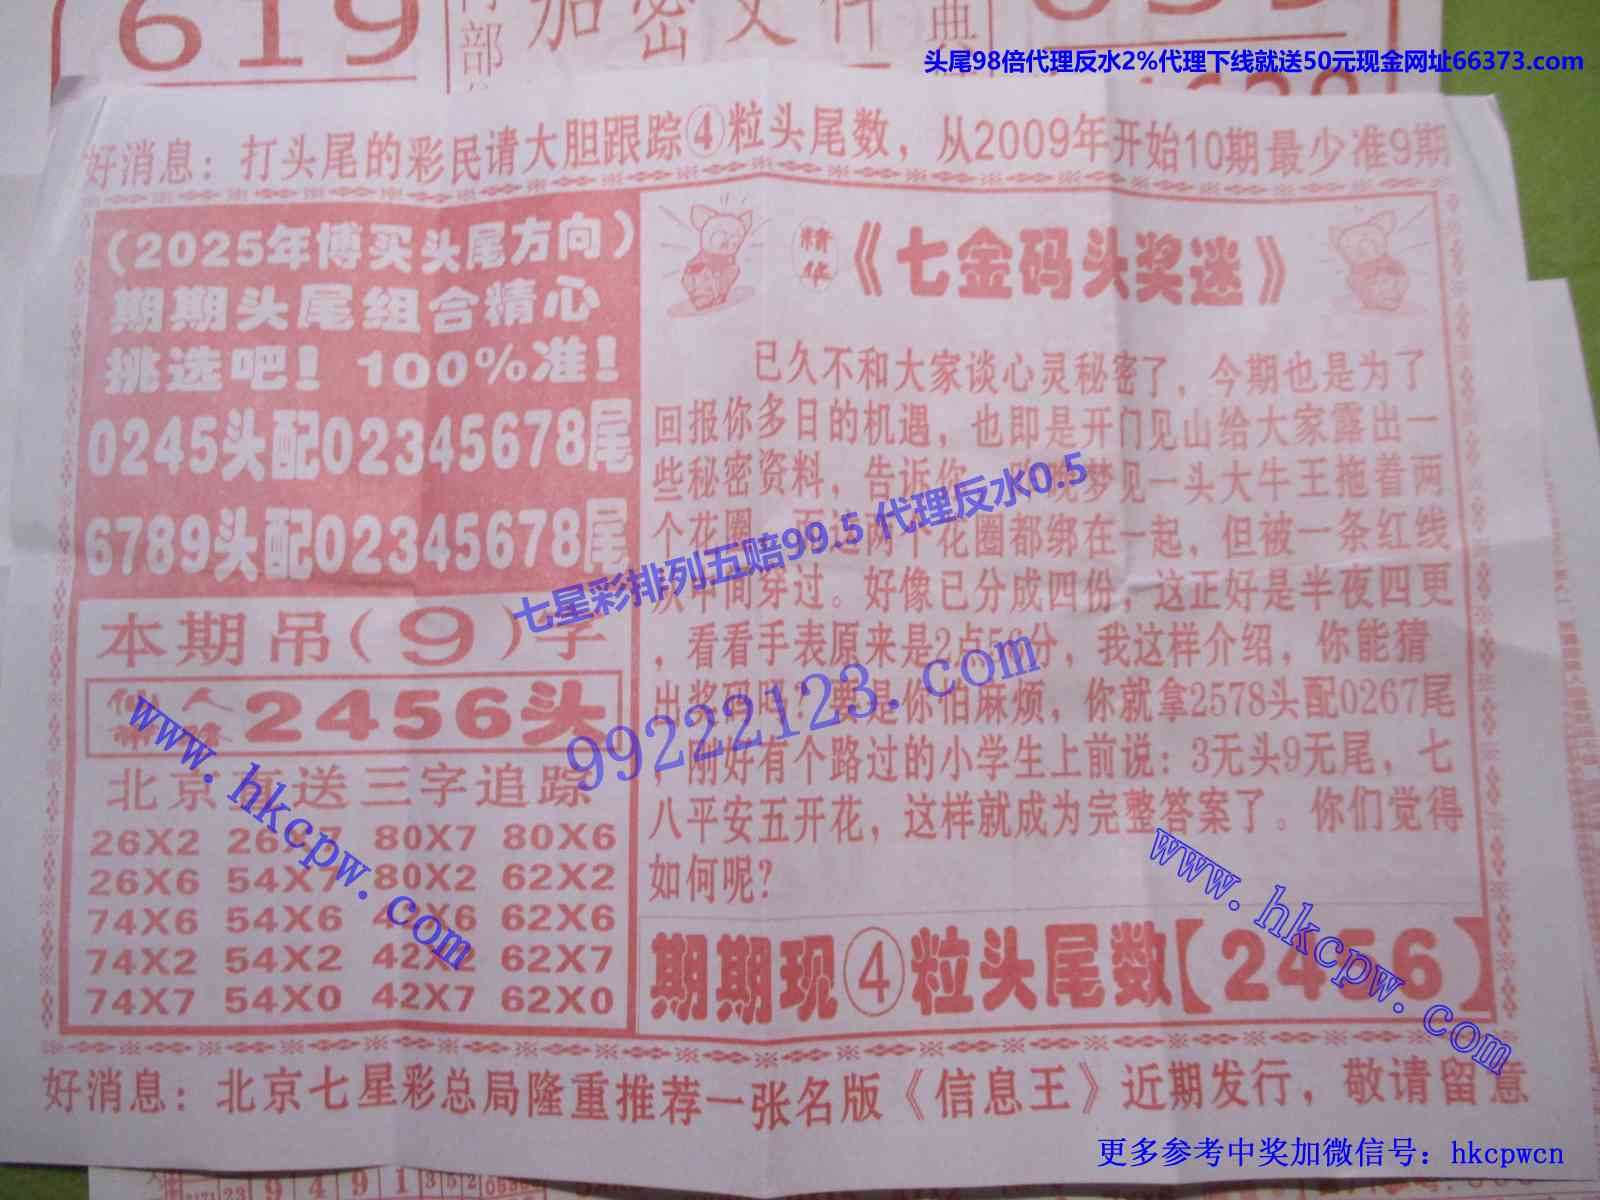 619
加密文件
头尾98倍代理反水2%代理下线就送50元现金网址66373.com
好消息：打头尾的彩民请大胆跟踪④粒头尾数，从2009年开始10期最少准9期
（2025年博买头尾方向）
期期头尾组合精心
挑选吧！100%准！
0245头配02345678尾
6789头配02345678尾
本期吊(9)字
2456头
北京 送三字追踪
26X2 26 7 80X7 80X6
26X6 54X7 80X2 62X2
74X6 54X6 42X6 62X6
74X2 54X2 42X2 62X7
74X7 54X0 42X7 62X0
精华《七金码头奖迷》
已久不和大家谈心灵秘密了，今期也是为了
回报你多日的机遇，也即是开门见山给大家露出一
些秘密资料，告诉你 晚梦见一头大牛王拖着两
个花圈 两个花圈都绑在一起，但被一条红线
从中间穿过。好像已分成四份，这正好是半夜四更
，看看手表原来是2点56分，我这样介绍，你能猜
出奖码吗？要是你怕麻烦，你就拿2578头配0267尾
，刚好有个路过的小学生上前说：3无头9无尾，七
八平安五开花，这样就成为完整答案了。你们觉得
如何呢？
期期现④粒头尾数【2456】
好消息：北京七星彩总局隆重推荐一张名版《信息王》近期发行，敬请留意
七星彩排列五赔99.5 代理反水0.5
99222123.com
www.hkcpw.com
www.hkcpw.com
更多参考中奖加微信号：hkcpwcn
9 4 9 1 3 5 2